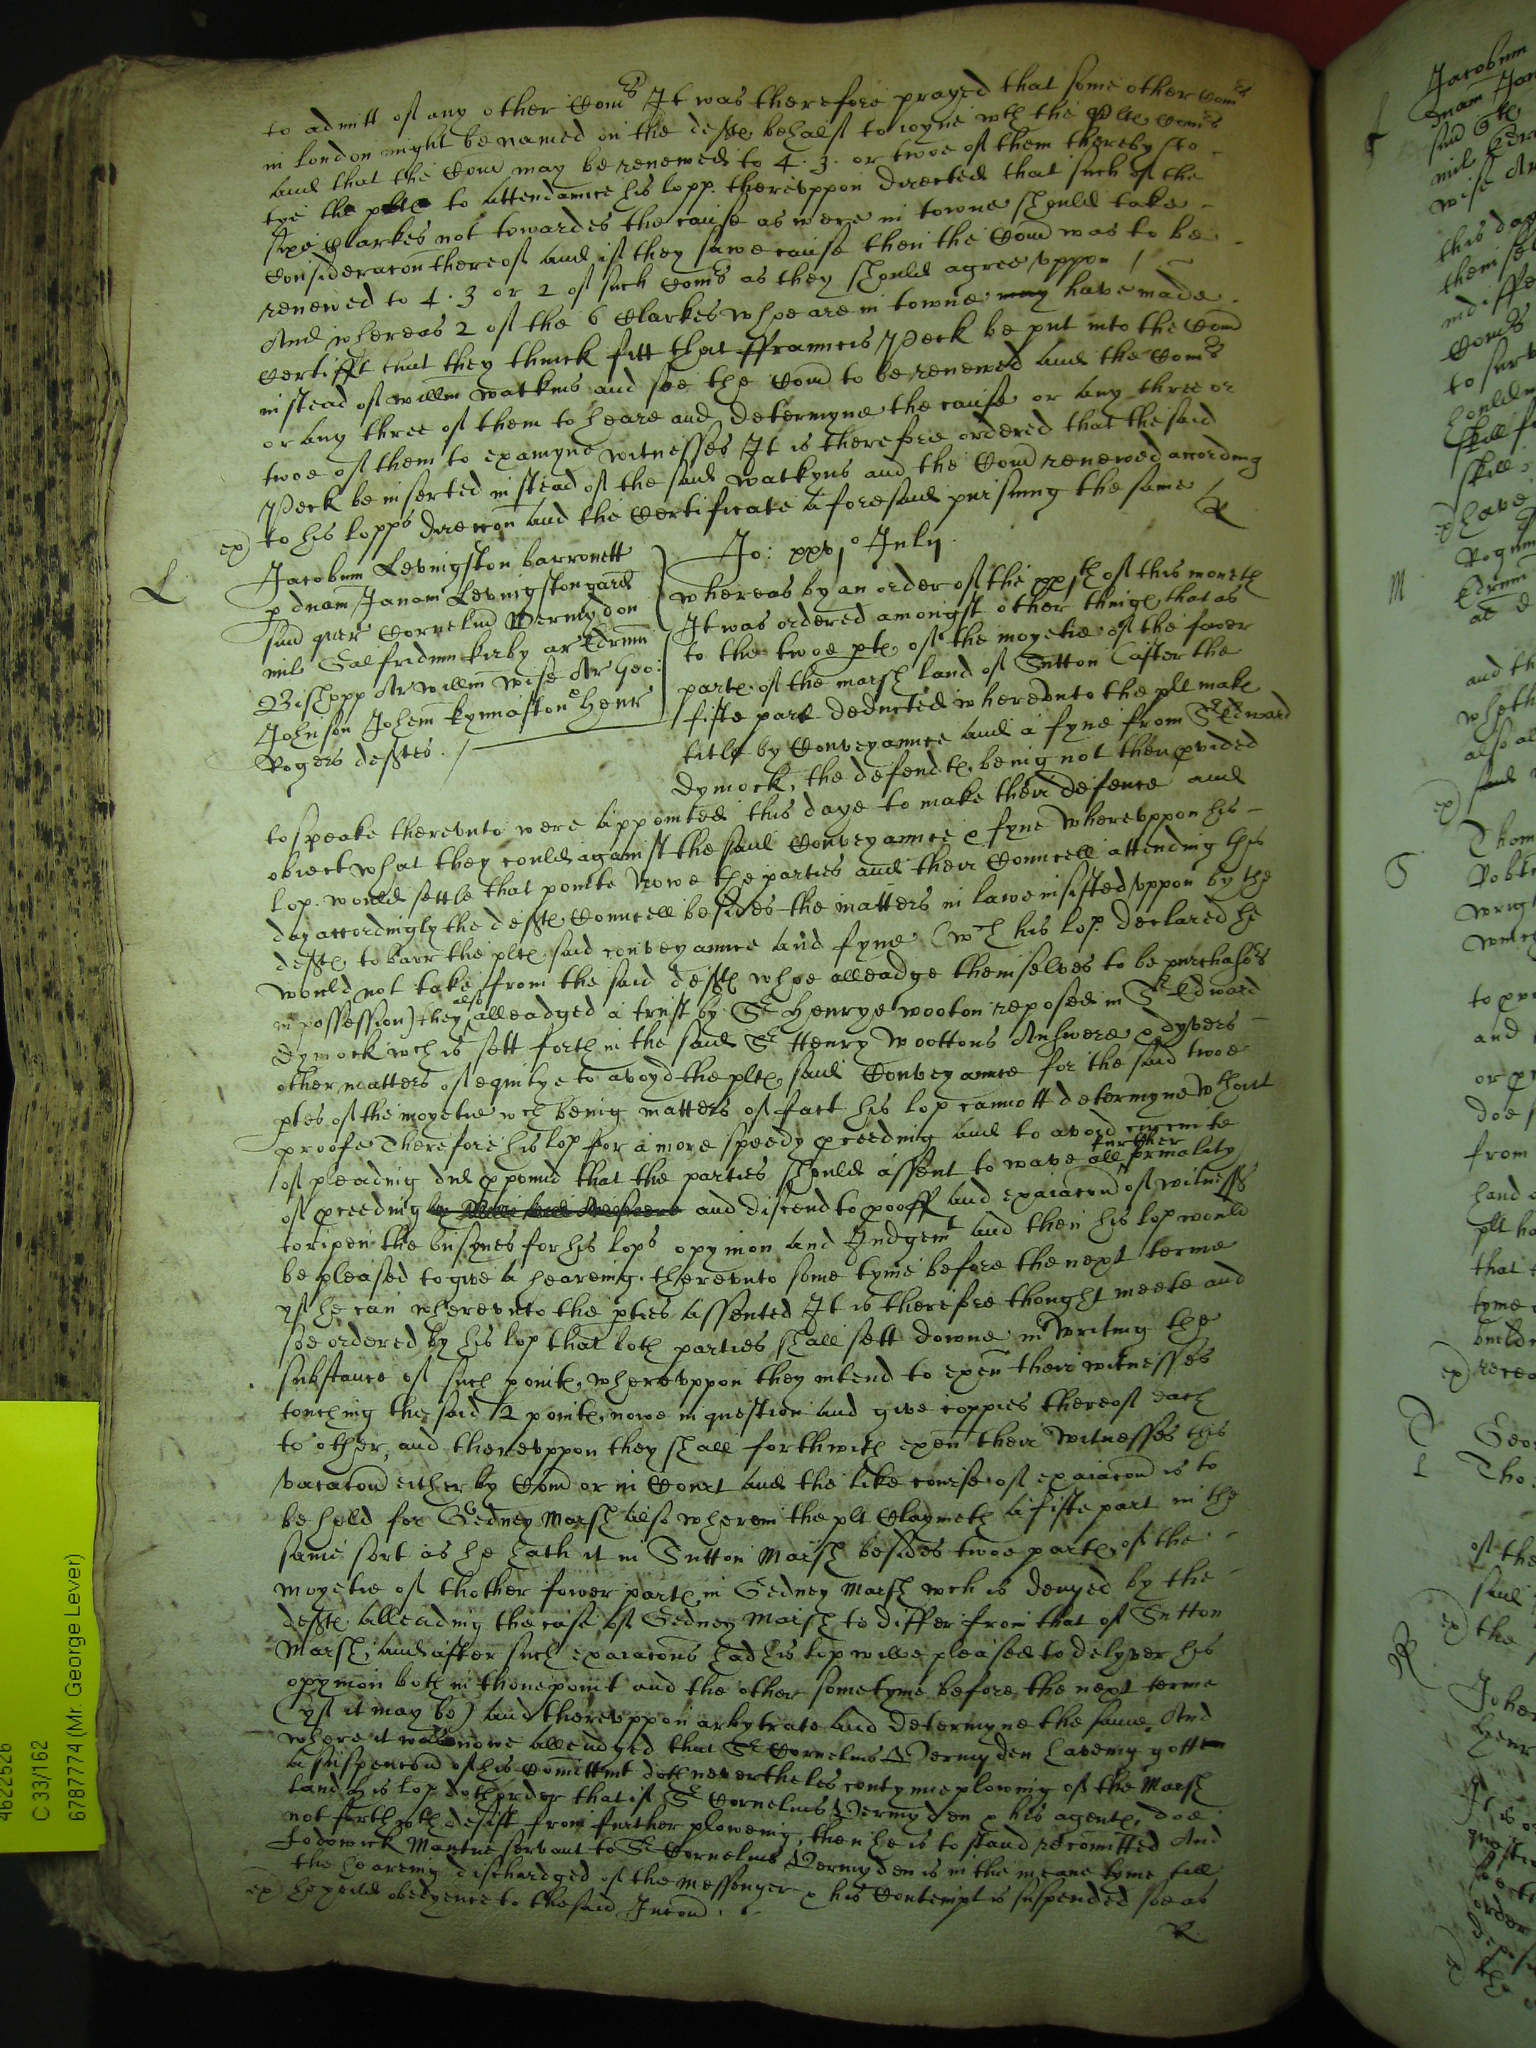 to admitt of any other Comrs It was therefore prayed that some other Comrs
in london might be named on the defts behalf to ioyne wth the plts Comrs
and that the Com may be renewed to 4 . 3 . or twoe of them thereby to
tye the plts to attendannce his lopp. therevppon directed that such of the
sixe Clarkes not towardes the cause as were in towne should take
Consideracon thereof and if they sawe cause then the Com was to be
renewed to 4 . 3 or 2 of such Comrs as they should agree vppon /
And whereas 2 of the 6 Clarkes whoe are in towne may have made
Certifft that they thinck fitt that ffranncis Peck be put into the Com
in stead of willm watkins and soe the Com to be renewed and the Comrs
or any three of them to heare and determyne the cause or any three or
twoe of them to examyne witnesses It is therefore ordered that the said
Peck be inserted in stead of the said watkyns and the Com renewed according
to his lopps direccon and the Certificate aforesaid pursuing the same
R
ex)
L
Jacobum Levingston barronett
p dnam Janam Levingston gard
suu quer Cornelius Vermydon
mil Galfridum kirby ar Edrum
Bishopp Ar willm wise Ar Geo:
Johnson Johem kynnaston Henr
Rogers deftes . /
Jo: xxvjo July
whereas by an order of the xxjth of this moneth
It was ordered amongst other things that as
to the twoe pts of the moyetie of the fower
parts of the marsh land of Sutton (after the
fifte part deducted wherevnto the plt makes
title by Conveyannce and a fyne from Sr Edward
Dymock, the defendts being not then pvided
to speake therevnto were appointed this daye to make their defence and
obiect what they could against the said Conveyannce & fyne wherevppon his
lop. would settle that pointe Nowe the parties and their Councell attending this
day accordingly the defts Councell besides the matters in lawe insisted vppon by the
defts to barr the plts said conveyannce and fyne (wch his lop declared he
would not take from the said defts whoe alleadge themselves to be purchasers
in possession) they also alleadged a trust by Sr Henrye wooton reposed in Sr Edward
Dymock wch is sett forth in the said Sr Henry Woottons Answere & dyvers
other matters of equity & to avoyd the plts said Conveyannce for the said twoe
ptes of the moyetie wch being matters of fact his lop cannott determyne wthout
proofe Therefore his lop for a more speedy pceeding and to avoid circuite
of pleading did ppound that the parties should assent to wave all further formality
of pceeding and discend to pooff and exaiacon of witnesses
to ripen the busynes for his lops opymon and Judgemt and then his lop would
be pleased to give a heareing therevnto some tyme before the next terme
yf he can wherevnto the pties assented It is therefore thought meete and
soe ordered by his lop that both parties shall sett downe in writing the
substance of such points wherevppon they intend to exen their witnesses
touching the said 2 points nowe in question and give coppies thereof each
to other, and therevppon they shall forthwith exen their witnesses this
vacacon either by Com or in Court and the like course of exaiacon is to
be held for Gedney Marsh also wherein the plt Claymeth a fifte part in the
same sort as he hath it in Sutton Marsh besides twoe parts of the
moyetie of thother fower parts in Gedney Marsh wch is denyed by the
defts alleading the case of Gedney Marsh to differ from that of Sutton
Marsh, and after such exaiacons had his lop wilbe pleased to delyver his
opymon both in thone point and the other sometyme before the next terme
(yf it may be) and therevppon arbytrate and determyne the same And
where it was nowe alleadged that Sr Cornelius Vermyden haveing gotten
a suspencon of his Comittmt doth neverthelés contynue plowing of the Marsh
land his lop doth order that if Sr Cornelius Vermyden & his agents doe
not forthwth desist from further ploweing, then he is to stand recomitted And
Lodowick Mantue servant to Sr Cornelius Vermyden is in the meane tyme till
the heareing dischardged of the messenger & his Contempt is suspended soe as
he yeild obedyence to the said Iniucon .
ex)
R
4622526
C 33/162
67877774 (Mr. George Lever)